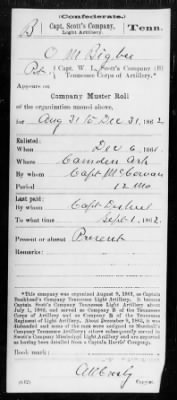 (Confederate.)
B Capt. Scott's Company, Light Artillery. Tenn.
O M Bigbee
Pvt, Capt. W. L. Scott's Company (B) Tennessee Corps of Artillery.*
Appears on
Company Muster Roll
of the organization named above,
for Aug 31 to Dec 31, 1862
Enlisted:
When Dec 6, 186
Where Camden Ark
By whom Capt McCowan
Period 12 Mo
Last paid:
By whom Capt
To what time Sept 1, 1862.
Present or absent Present
Remarks:
*This company was organized August 9, 1861, as Captain
Company Tennessee Light Artillery. It became
Captain Scott's Company Tennessee Light Artillery about
July 1, 1862, and served as Company B of the Tennessee
Corps of Artillery and as Company of the Tennessee
Regiment of Light Artillery. About December 9, 1863, it was
disbanded and some of the men were assigned to Marshall's
Company Tennessee Artillery; others subsequently served in
Company Mississippi Light Artillery and are reported
as having been detailed from a Captain Company.
Book mark:
(642)
Copyist.